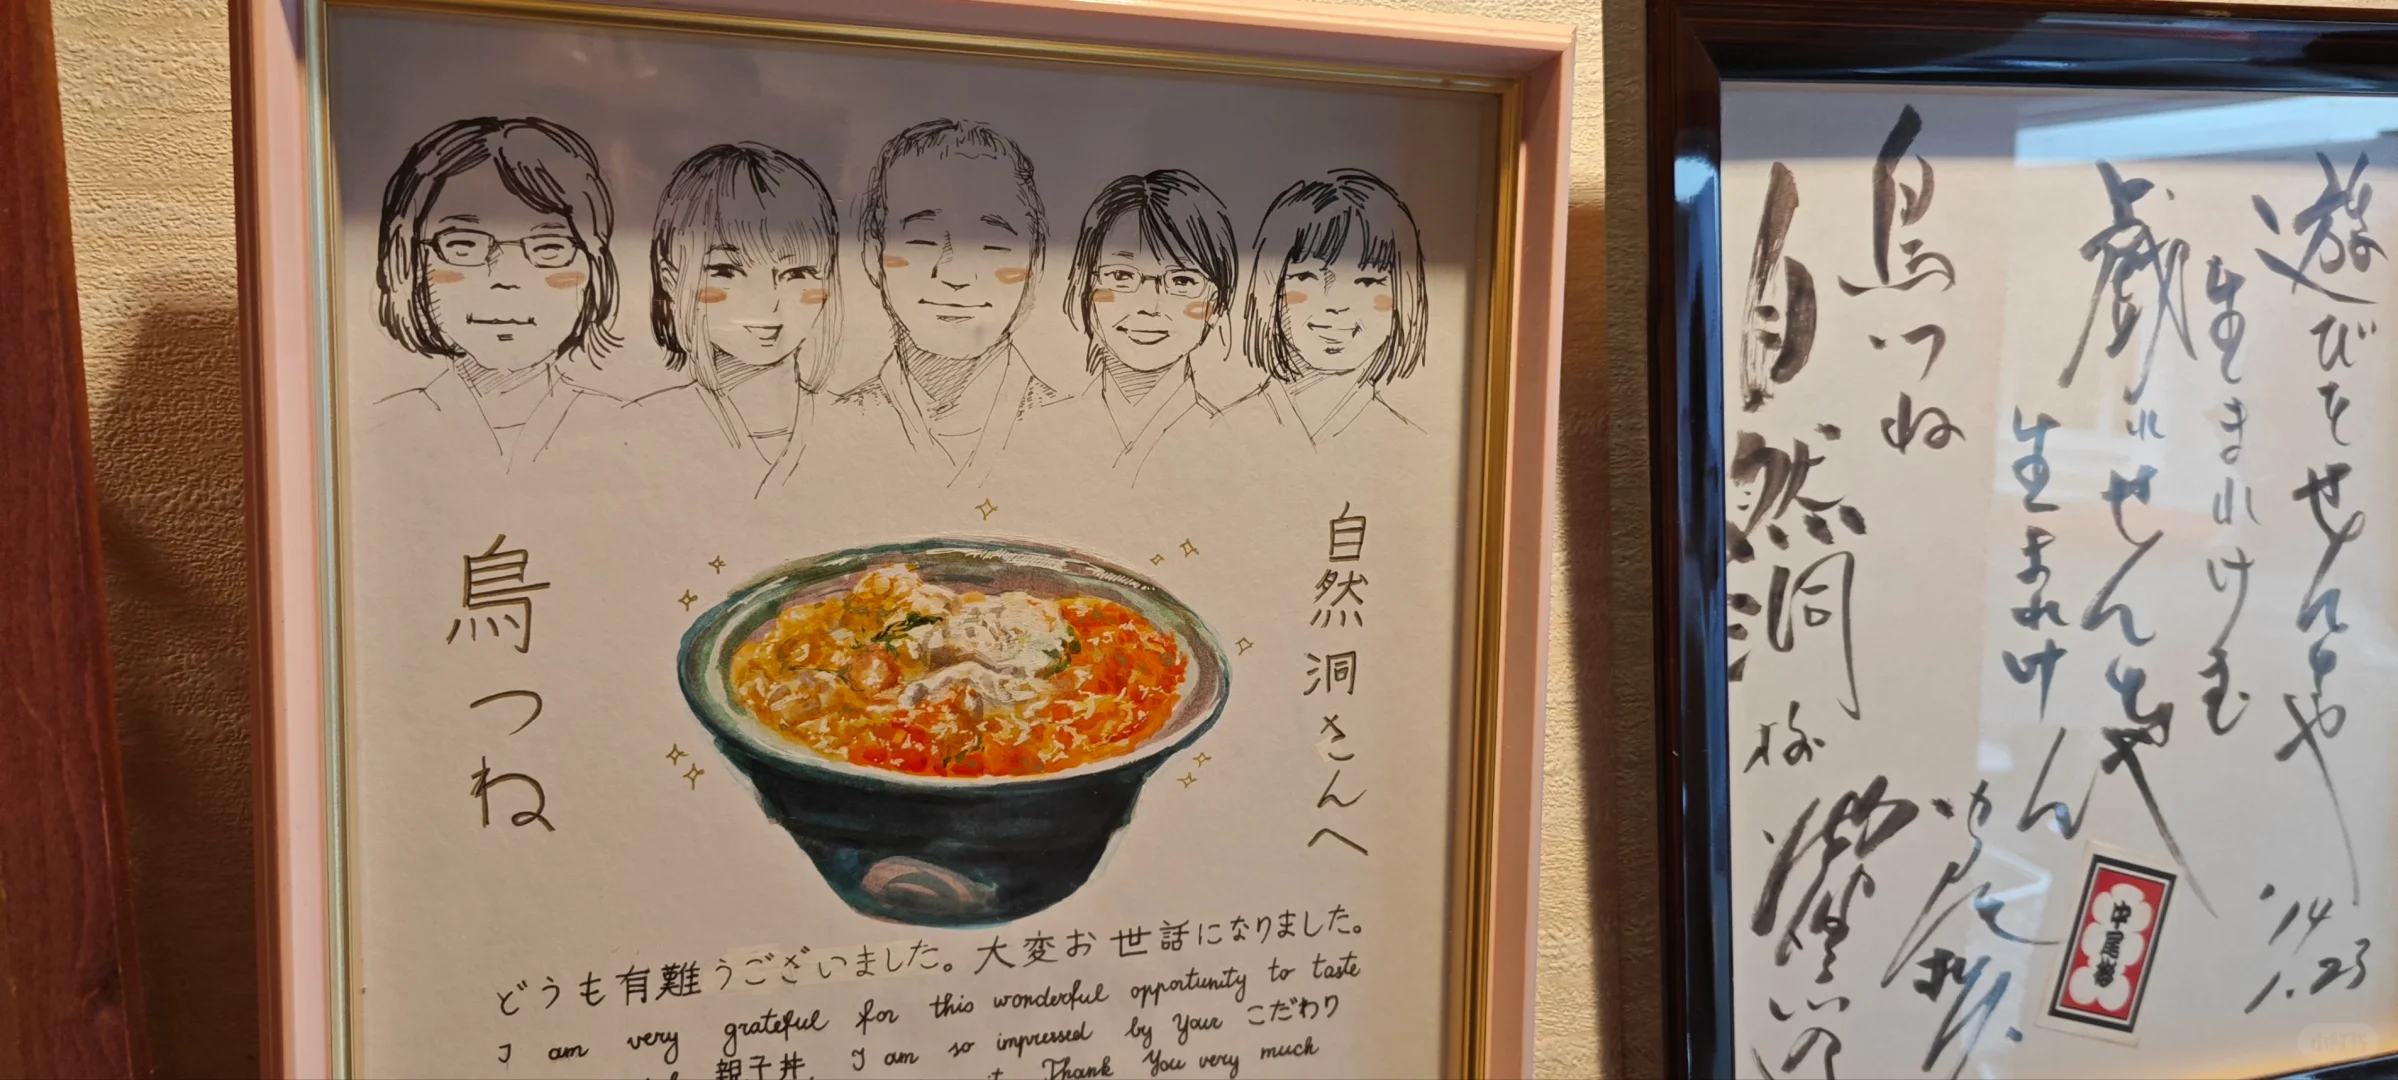 自然洞さんへ
鳥つね
どうも有難うございました。大変お世話になりました。
I am very grateful for this wonderful opportunity to taste
親子丼. I am so impressed by your こだわり
Thank You very much
遊びをせんとや
生まれけむ
戯れせんとや
生まれけん
鳥つね
自然洞
'14
1.23
中尾彬